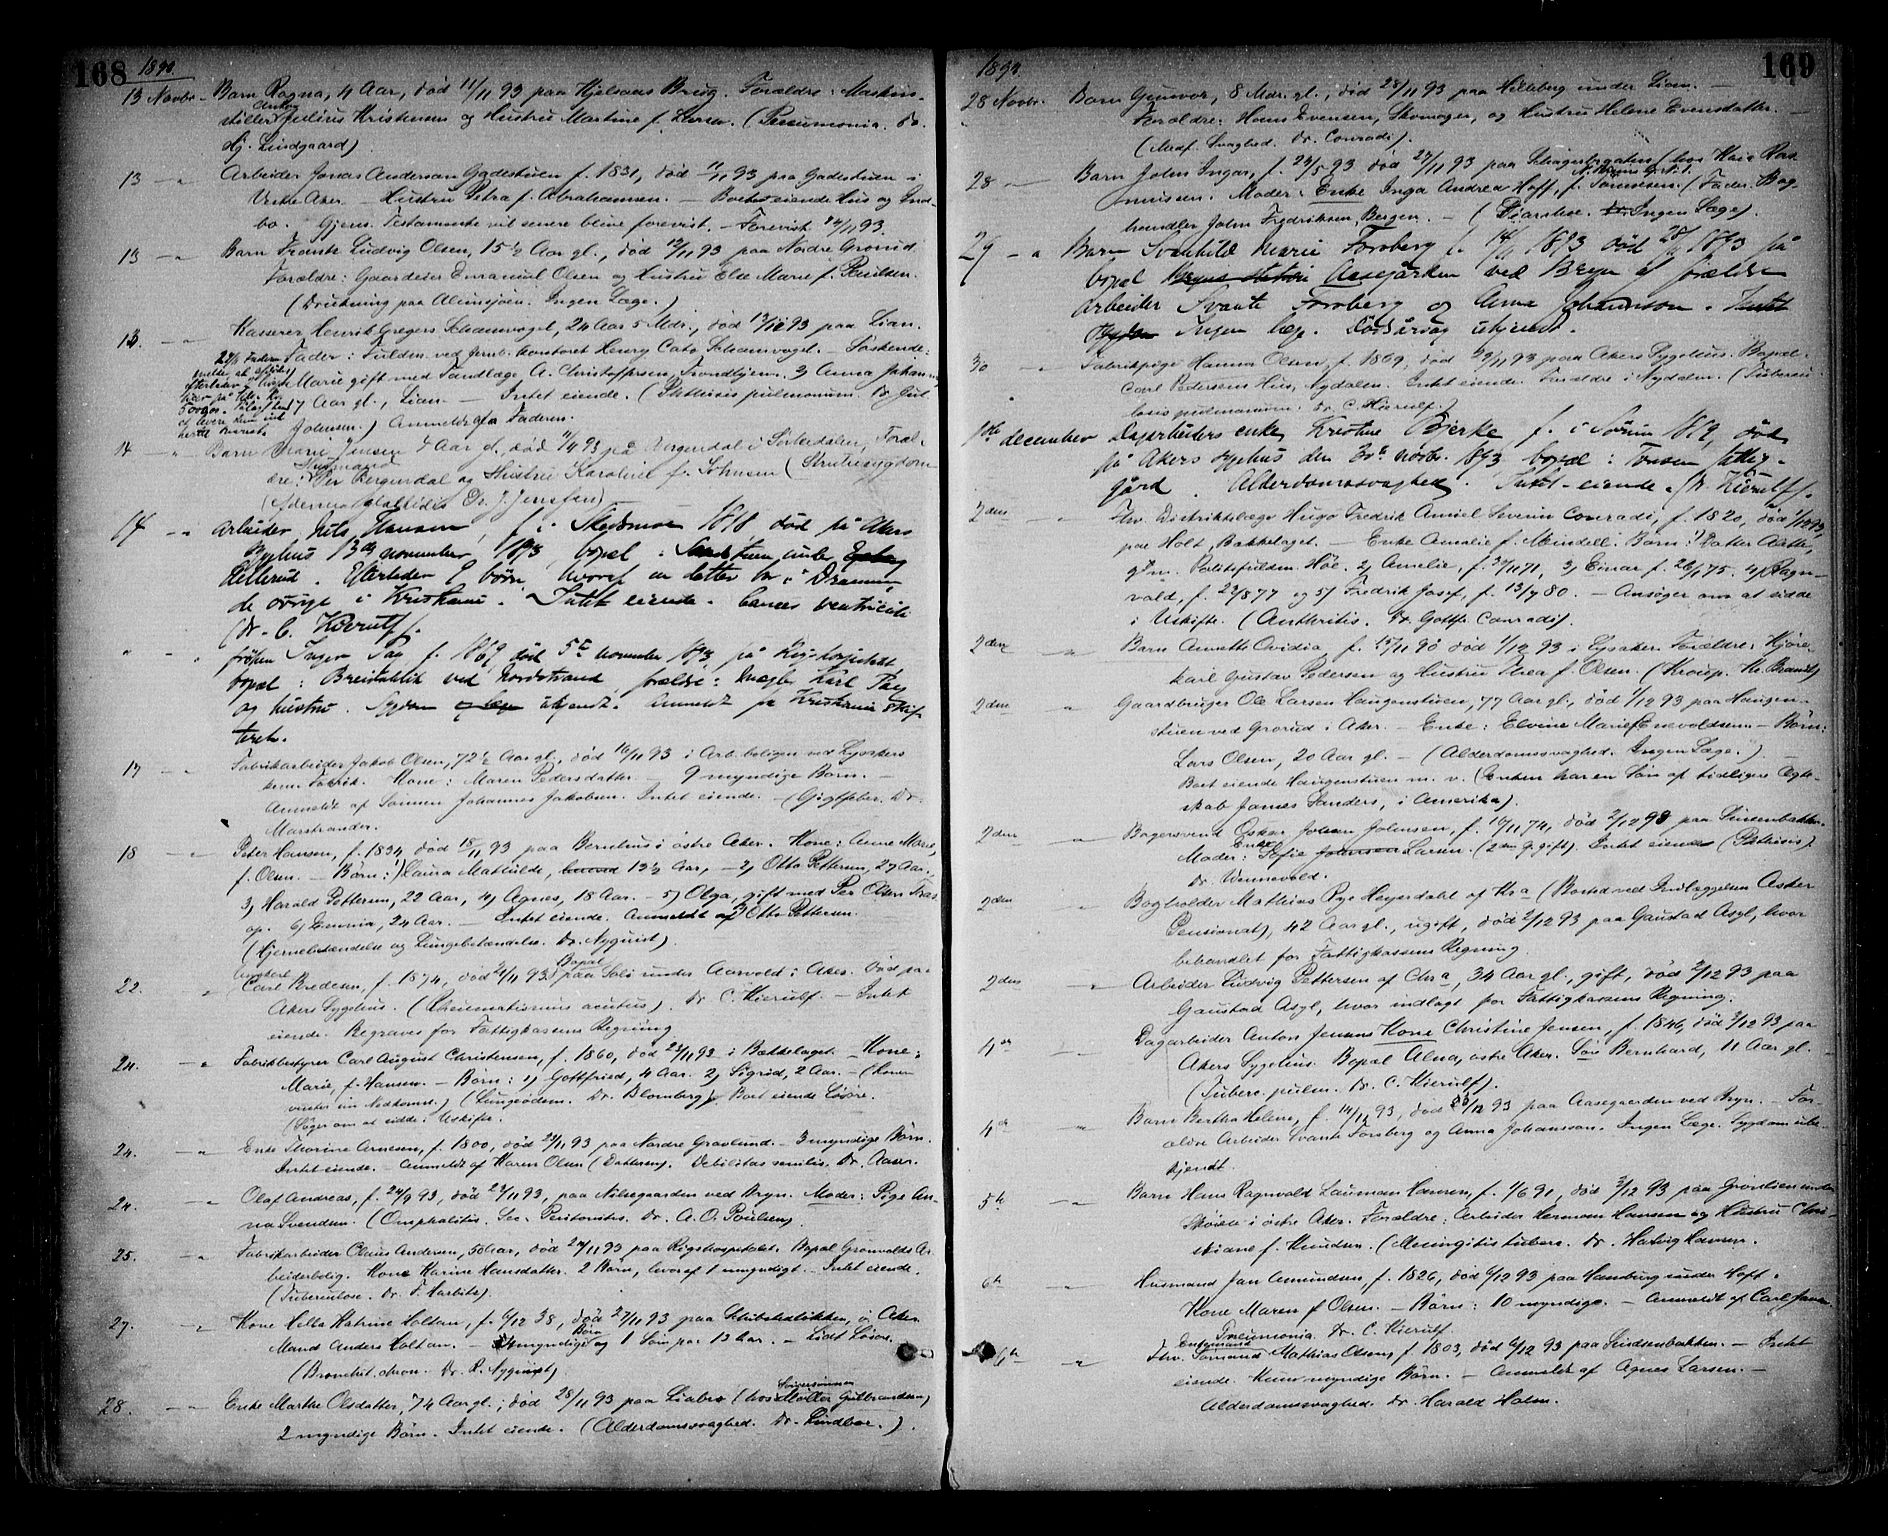 168 1893.
13 Novbr - Barn Ragna, 4 Aar, død 11/11 93 paa Hjelsaas Brug. Forældre: Maskin-
stiller Julius Kristensen og Hustru Martine f. Larsen. (Pneumonia. Dr.
Hj. Lindgaard)
13 -"- Arbeider Jonas Andersen Gadestuen f. 1831, død 11/11 93 paa Gadestuen i
Vestre Aker. - Hustru Petra f. Abrahamsen. - Boet eiende Hus og Ind-
bo. Gjens. Testamente vil senere blive forevist. - Forevist 24/11 93.
13 -"- Barn Frants Ludvig Olsen, 15 ½ Aar gl., død 12/11 93 paa Nordre Grorud
Forældre: Gaardeier Emanuel Olsen og Hustru Else Marie f. Paulsen.
(Drukning paa Alunsjøen. Ingen Læge.)
13. -"- Kasserer Henrik Gregers Schanvogel, 24 Aar 5 Mdr., død 13/11 93 paa Lian.
Fader: Fuldm. ved Jernb. kontoret Henry Cato Schanvogel. - Søskende:
Marie gift med Tandlæge A. Christoffersen, Trondhjem. 2) Anna Johan-
17 Aar gl., Lian. - Intet eiende. (Phthisis pulmonum. Dr. Gul.
Johnsen.) Anmeldt af Faderen.
14 -"- Barn Marie Jensen Aar gl. død 11/11 93 paa Bergendal i Sørkedalen, Foræl-
dre: Husmand Per Bergendal og Hustru Karoline f. Johnsen (Strubesygdom
Dr. J. Jensen) -
14 -"- Arbeider Nils Hansen, f. i Skedsmo 1818 død på Akers
sygehus 13de november 1893 bopæl: under
Hellerud. Efterlader 9 børn, hvoraf en datter bor i Drammen,
de øvrige i Kristiania. Intet eiende. Cancer ventriculi
(Dr. C. Kierulf).
" - " frøken Inger Pay f. 1869 død 5te november 1893 på Rigshospitalet,
bopæl: Breidablik ved Nordstrand forældre: Mægler Karl Pay
og hustru. Sygdom og læge ukjendt. Anmeldt fra Kristiania skif-
teret.
17 -"- Fabrikarbeider Jakob Olsen, 72 ½ Aar gl., død 16/11 93 i Arb. boligen ved Lysakers
kem. Fabrik. Kone: Maren Pedersdatter. - 9 myndige Børn. -
Anmeldt af Sønnen Johannes Jakobsen. Intet eiende. - (Gigtfeber. Dr.
Marstrander.
18 -"- Peter Hansen, f. 1834, død 15/11 93 paa Bernhus i østre Aker. - Kone: Anne Marie,
f. Olsen. - Børn: 1) Laura Mathilde, 13 ½ Aar, - 2) Otto Pettersen, 27 Aar.
3) Harald Pettersen, 22 Aar, 4) Agnes, 18 Aar. - 5) Olga, gift med Per Olsen
6) Emma, 24 Aar. - Intet eiende. Anmeldt af Otto Pettersen.
(Hjernebetændelse og Lungebetændelse. Dr. Nyquist).
22. " Ungkarl Carl Bredesen, f. 1874, død 21/11 93. Bopæl paa Solø under Aarvold i Aker. Død paa
Akers Sygehus. (Rheumatismus acutus). Dr. C. Kierulf. - Intet
eiende. Begraves for Fattigkassens Regning
24. -"- Fabrikbestyrer Carl August Christensen, f. 1860, død 23/11 93 i Bækkelaget. - Kone:
Marie, f. Hansen. - Børn: 1) Gottfried, 4 Aar. 2) Sigrid, 2 Aar. - (Konen
venter sin Nedkomst.) (Lungeødem. Dr. Blomberg). Boet eiende Løsøre.
(Søger om at sidde i Uskifte.
24. -"- Enke Thorine Arnesen, f. 1800, død 21/11 93, paa Nordre Gravlund. - 3 myndige Børn.
Intet eiende. - Anmeldt af Karen Olsen (Datteren). Debilitas senilis. Dr. Aaser.
24. " Olaf Andreas, f. 24/9 93, død 22/11 93, paa Nilsegaarden ved Bryn. Moder: Pige An-
na Svendsen. (Omphalitis. Sec. Peritonitis. Dr. A. O. Poulsen).
25. -"- Fabrikarbeider Claus Andersen, 50 Aar, død 24/11 93 paa Rigshospitalet. Bopæl Grønvolds Ar-
beiderbolig. Kone Karine Hansdatter. 2 Børn, hvoraf 1 myndigt. Intet eiende.
(Tuberculose. Dr. F. Harbitz).
27. -"- Kone Helle Katrine Holtan, f. 6/12 38, død 27/11 93 paa Skibstadløkken, ø. Aker.
Mand Anders Holtan. - myndige Børn og 1 Søn paa 13 Aar. - Lidt Løsøre.
(Bronchit. chron. Dr. R. Nyquist)
28. -"- Enke Marthe Olsdatter, 74 Aar gl., død 28/11 93 paa Liabro (hos Svigersønnen Møller Gulbrandsen)
2 myndige Børn. Intet eiende. (Alderdomssvaghed. Dr. Lindboe.).
1893. 169
28 Novbr. Barn Gunvor, 8 Mdr. gl., død 28/11 93 paa Hilleberg under Lian. -
Forældre: Hans Evensen, Skomager, og Hustru Helene Evensdatter. -
(Medf. Svaghed. Dr. Conradi).
28 -"- Barn John Ingar, f. 24/5 93 død 27/11 93 paa (hos Kaia Ras-
mussen. Moder: Enke Inga Andrea Hoff, f. Tørmosen. (Fader: Bog-
handler John Fredriksen, Bergen. - (Diarrhoe. Ingen Læge).
29 - " Barn Svanhild Marie Forsberg f. 14/11 1893 død 28/11 1893 på
bopæl Bryns station Aasegården ved Bryn af forældre
arbeider Svante Forsberg og Anna Johansson. Intet
Ingen læge. Dødsårsag ukjendt.
30 -"- Fabrikpige Hanna Olsen, f. 1869, død 29/11 93 paa Akers Sygehus. Bopæl
Carl Pedersens Hus, Nydalen. Intet eiende. Forældre i Nydalen. (Tubercu-
losis pulmonum. Dr. C. Kierulf.)
1ste december Dagarbeiders enke, Kristine Bjerke f. i Sørum 1819, død
på Akers sygehus den 30te novbr. 1893 bopæl: Tonsen fattig-
gård. Alderdomssvaghed. Intet eiende. (Dr. Kierulf).
2den " Fhv. Distriktslæge Hugo Fredrik Amiel Severin Conradi, f. 1820, død 1/12 93,
paa Holt, Bækkelaget. - Enke Amalie f. Meidell. Børn: 1) Datter Aasta,
g. m. Politifuldm. Höe. 2) Amelie, f. 27/11 71, 3) Einar f. 26/1 75. 4) Ragn-
vald, f. 22/8 77 og 5) Fredrik Josef, f. 13/7 80. - Ansøger om at sidde
i Uskifte. (Arthritis. Dr. Gottfr. Conradi).
2den " Barn Annette Ovidia f. 15/11 90 død 1/12 93 i Lysaker. Forældre: Kjøre-
karl Gustav Pedersen og Hustru Thea f. Olsen. (Kroup. Kr. Brandt)
2den " Gaardbruger Ole Larsen Haugenstuen, 77 Aar gl., død 1/12 93 paa Haugen-
stuen ved Grorud i Aker. - Enke: Elvine Marie Enevoldsen - Børn:
Lars Olsen, 20 Aar gl. - (Alderdomssvaghed. Ingen Læge.) -
Boet eiende Haugenstuen m. v. (Enken har en Søn af tidligere Ægte-
skab James Sanders, i Amerika).
2den " Bagersvend Oskar Johan Johnsen, f. 16/11 74, død 2/12 93 paa Sinsenbakken.
Moder: Enke Sofie Johnsen Larsen. (2den G. gift). Intet eiende (Phthisis).
Dr. Wennevold.
2den " Bogholder Mathias Rye Heyerdahl af Kra (Bosted ved Indlæggelsen Asker
Pensionat), 42 Aar gl., ugift, død 2/12 93 paa Gaustad Asyl, hvor
behandlet for Fattigkassens Regning
2den -"- Arbeider Ludvig Pettersen af Chra, 34 Aar gl., gift, død 2/12 93 paa
Gaustad Asyl, hvor indlagt for Fattigkassens Regning.
4de -"- Dagarbeider Anton Jensens Kone Christine Jensen, f. 1846, død 3/12 93 paa
Akers Sygehus. Bopæl Alna, østre Aker. Søn Bernhard, 11 Aar gl.
(Tuberc. pulm. Dr. C. Kierulf).
4de " Barn Bertha Helene, f. 14/11 93, død 3/12 93 paa Aasegaarden ved Bryn. - For-
ældre Arbeider Svante Forsberg og Anna Johansson. Ingen Læge. Sygdom ube-
kjendt.
5te " Barn Hans Ragnvald Lauman Hansen, f. 4/6 91, død 3/12 93 paa Grønlien under
i østre Aker. Forældre: Arbeider Herman Hansen og Hustru Chri-
stiane f. Knudsen. (Meningitis tuberc. Dr. Halvig Hansen.
6te " Husmand Jan Amundsen, f. 1826, død 6/12 93 paa Hamburg under Hoft.
Kone Maren f. Olsen. - Børn: 10 myndige. - Anmeldt af Carl Jansen
Pneumonia. Dr. C. Kierulf.
6te " Fhv. Enkemand Sömand Mathias Olsen, f. 1803, død 6/12 93 paa Sindsenbakken. - Intet
eiende. Kun myndige Børn. - Anmeldt af Agnes Larsen. -
Alderdomssvaghed. Dr. Harald Holm.